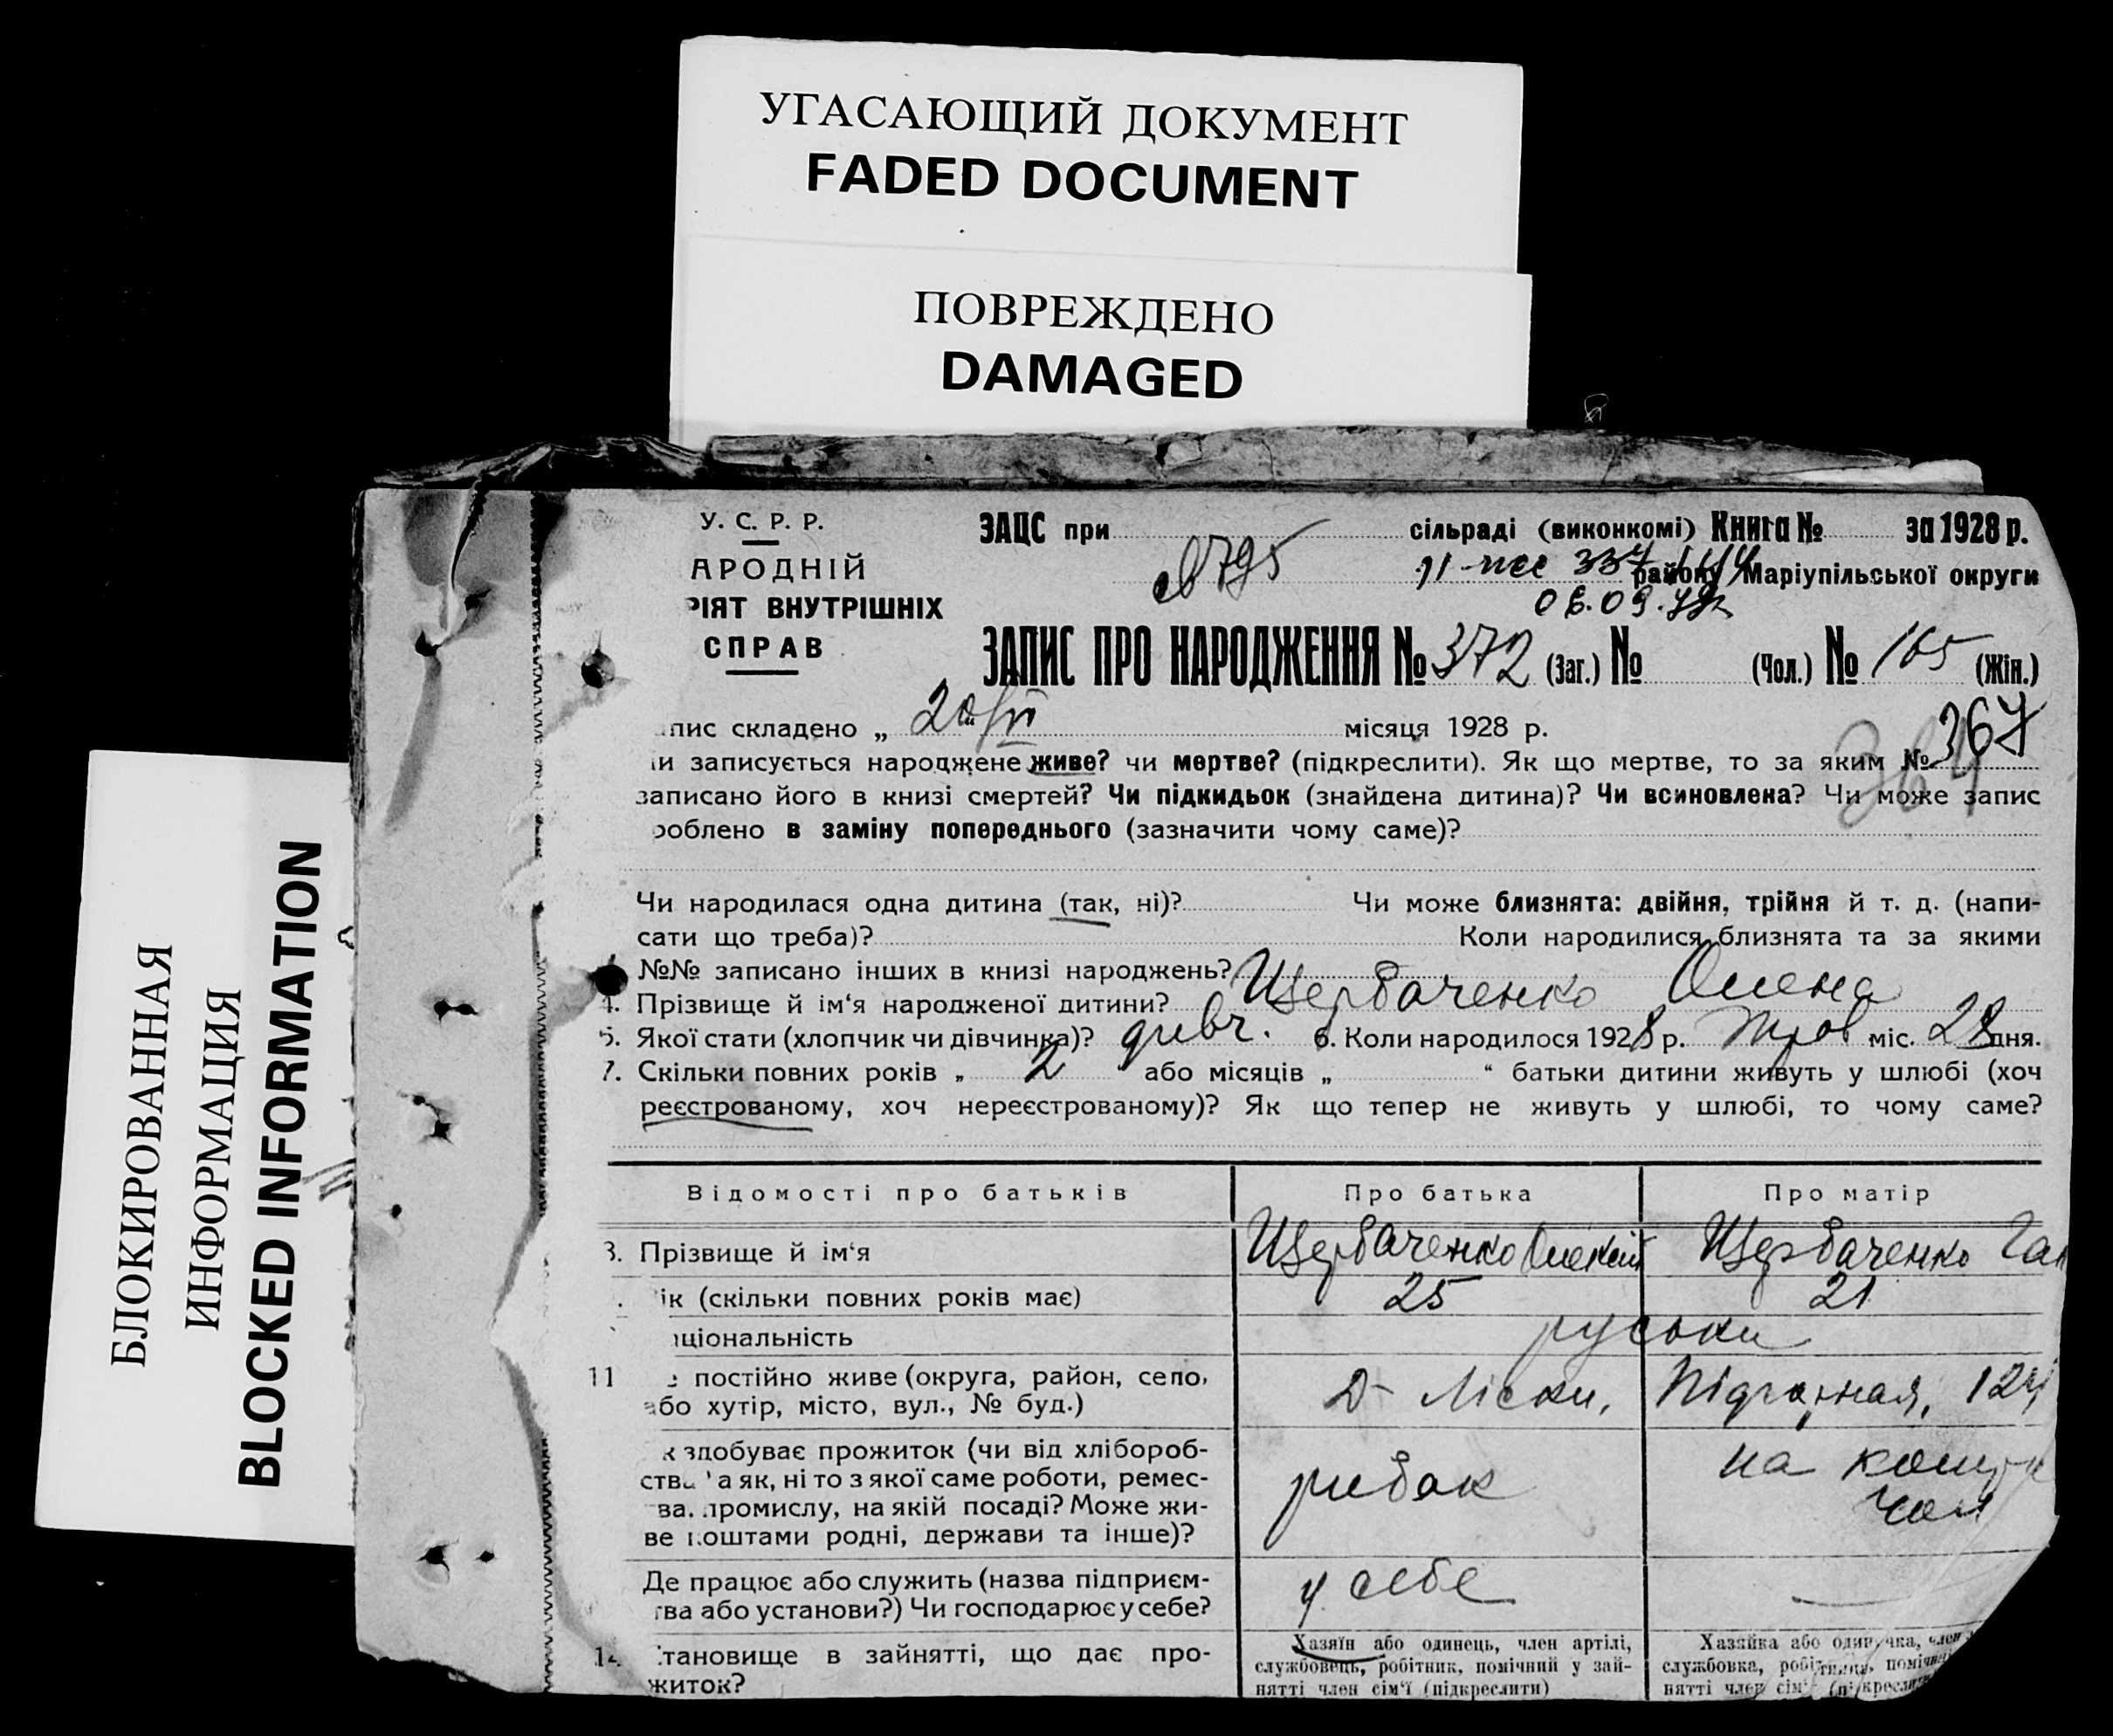 УГАСАЮЩИЙ ДОКУМЕНТ
FADED DOCUMENT
ПОВРЕЖДЕНО
DAMAGED
БЛОКИРОВАННАЯ
ИНФОРМАЦИЯ
BLOCKED INFORMATION
У. С. Р. Р.
АРОДНІЙ
РІЯТ ВНУТРІШНІХ
СПРАВ
ЗАЦС при сільраді (виконкомі) Книга № за 1928 р.
795 району Маріупільської округи
06.09.
ЗАПИС ПРО НАРОДЖЕННЯ № 372 (Заг.) № (Чол.) № 165 (Жін.)
пис складено „ 20/VI місяця 1928 р.
367
и записується народжене живе? чи мертве? (підкреслити). Як що мертве, то за яким №
записано його в книзі смертей? Чи підкидьок (знайдена дитина)? Чи всиновлена? Чи може запис
роблено в заміну попереднього (зазначити чому саме)?
Чи народилася одна дитина (так, ні)? Чи може близнята: двійня, трійня й т. д. (напи-
сати що треба)? Коли народилися близнята та за якими
№№ записано інших в книзі народжень?
4. Прізвище й ім‘я народженої дитини? Щербаченко Олена
5. Якої стати (хлопчик чи дівчинка)? дивч. 6. Коли народилося 1928 р. трав міс. 28 дня.
7. Скільки повних років „ 2 або місяців „ “ батьки дитини живуть у шлюбі (хоч
реєстрованому, хоч нереєстрованому)? Як що тепер не живуть у шлюбі, то чому саме?
Відомості про батьків Про батька Про матір
8. Прізвище й ім‘я Щербаченко Олексій Щербаченко Ган
ік (скільки повних років має) 25 21
ціональність руськи
11 постійно живе (округа, район, село, Д- Ліски, Підгорная, 124
або хутір, місто, вул., № буд.)
к здобуває прожиток (чи від хлібороб-
ства а як, ні то з якої саме роботи, ремес-
ва, промислу, на якій посаді? Може жи-
ве коштами родні, держави та інше)?
рибак
на кошти
чол
Де працює або служить (назва підприєм-
тва або установи?) Чи господарює у себе?
у себе —
14 тановище в зайнятті, що дає про-
житок?
Хазяїн або одинець, член артілі,
службовець, робітник, помічний у зай-
нятті член сім‘ї (підкреслити)
Хазяйка або одиначка, член
службовка, робітниця, помічн
нятті член сім‘ї (підкресли